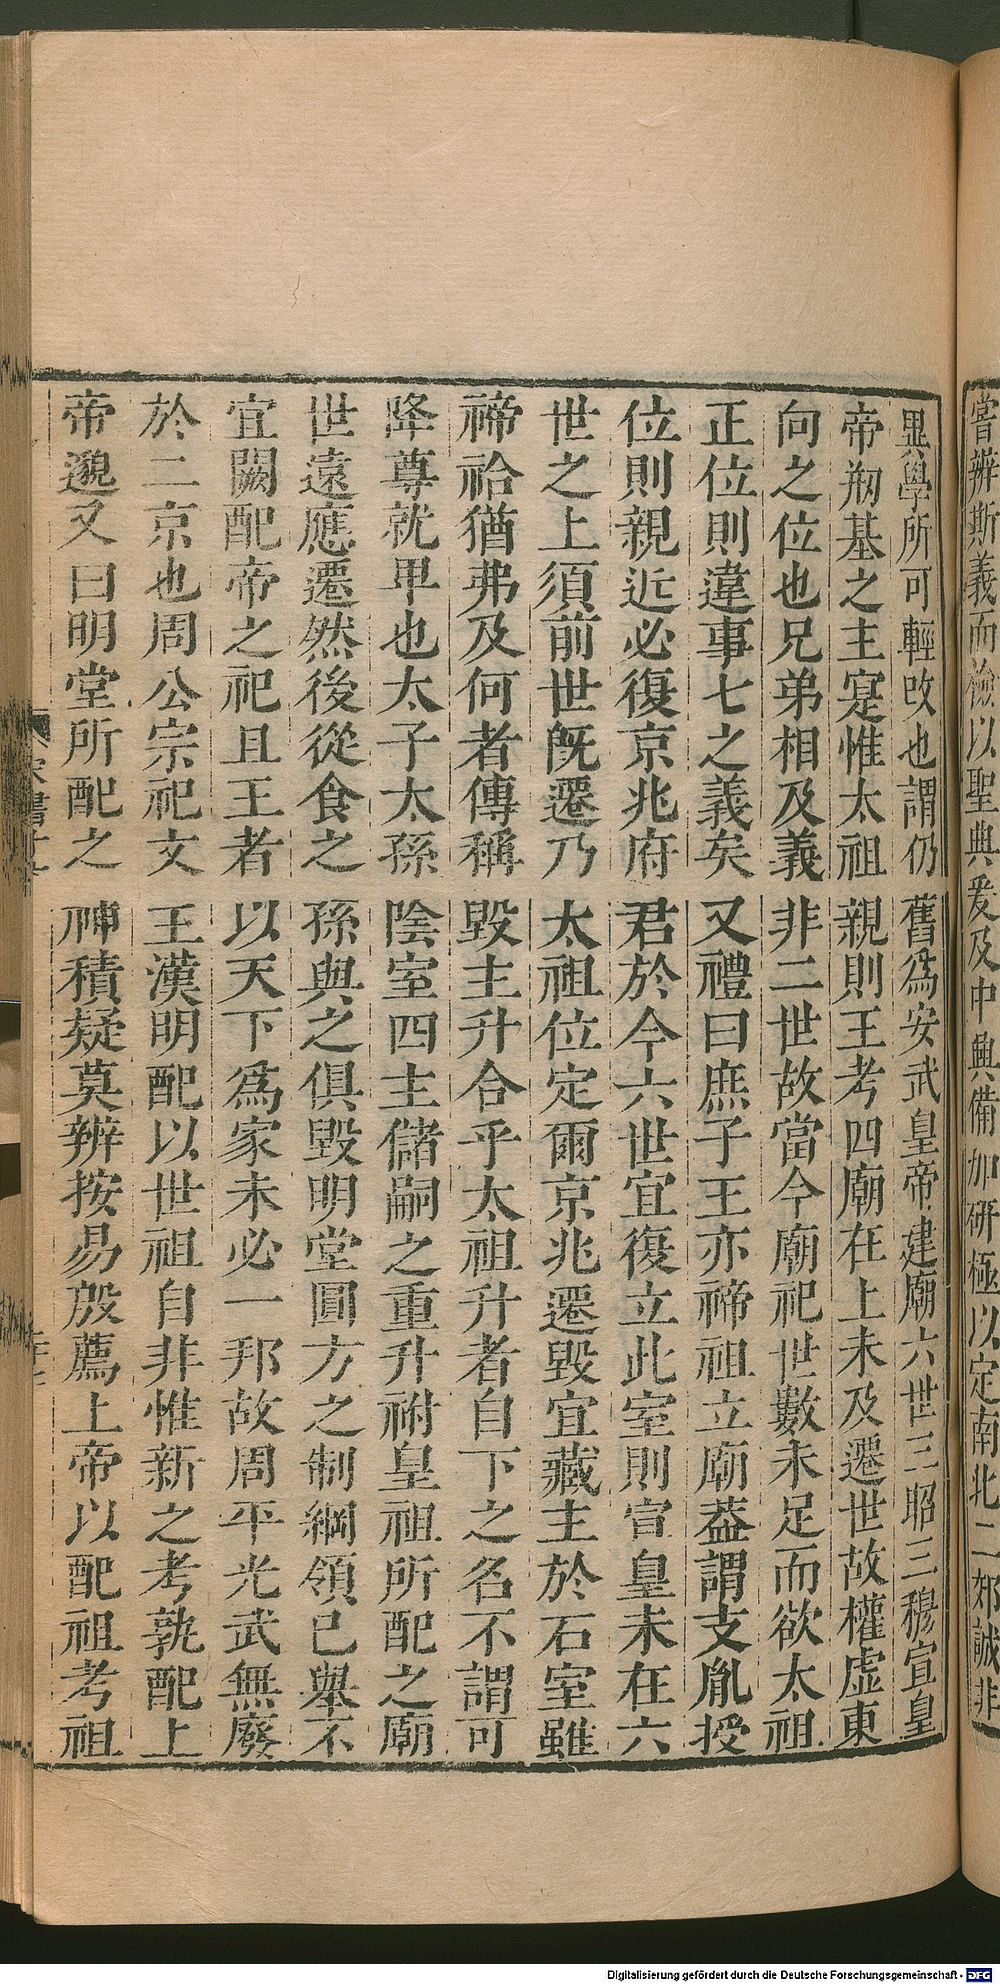 嘗辨斯義而檢以聖典爰及中興備加研極以定南北二郊誠非
異學所可輕改也謂仍舊爲安武皇帝建廟六世三昭三穆宣皇
帝剏基之主寔惟太祖親則王考四廟在上未及遷世故權虛東
向之位也兄弟相及義非二世故當今廟祀世數未足而欲太祖
正位則違事七之義矣又禮曰庶子王亦禘祖立廟葢謂支胤授
位則親近必復京兆府君於今六世宜復立此室則宣皇未在六
世之上須前世旣遷乃太祖位定爾京兆遷毀宜藏主於石室雖
禘祫猶弗及何者傳稱毀主升合乎太祖升者自下之名不謂可
降尊就𤰞也太子太孫陰室四主儲嗣之重升祔皇祖所配之廟
世遠應遷然後從食之孫與之俱毀明堂圓方之制綱領已舉不
宜闕配帝之祀且王者以天下爲家未必一邦故周平光武無廢
於二京也周公宗祀文王漢明配以世祖自非惟新之考孰配上
帝邈又曰明堂所配之神積疑莫辨按易殷薦上帝以配祖考祖
宋書十六
Digitalisierung gefördert durch die Deutsche Forschungsgemeinschaft - DFG